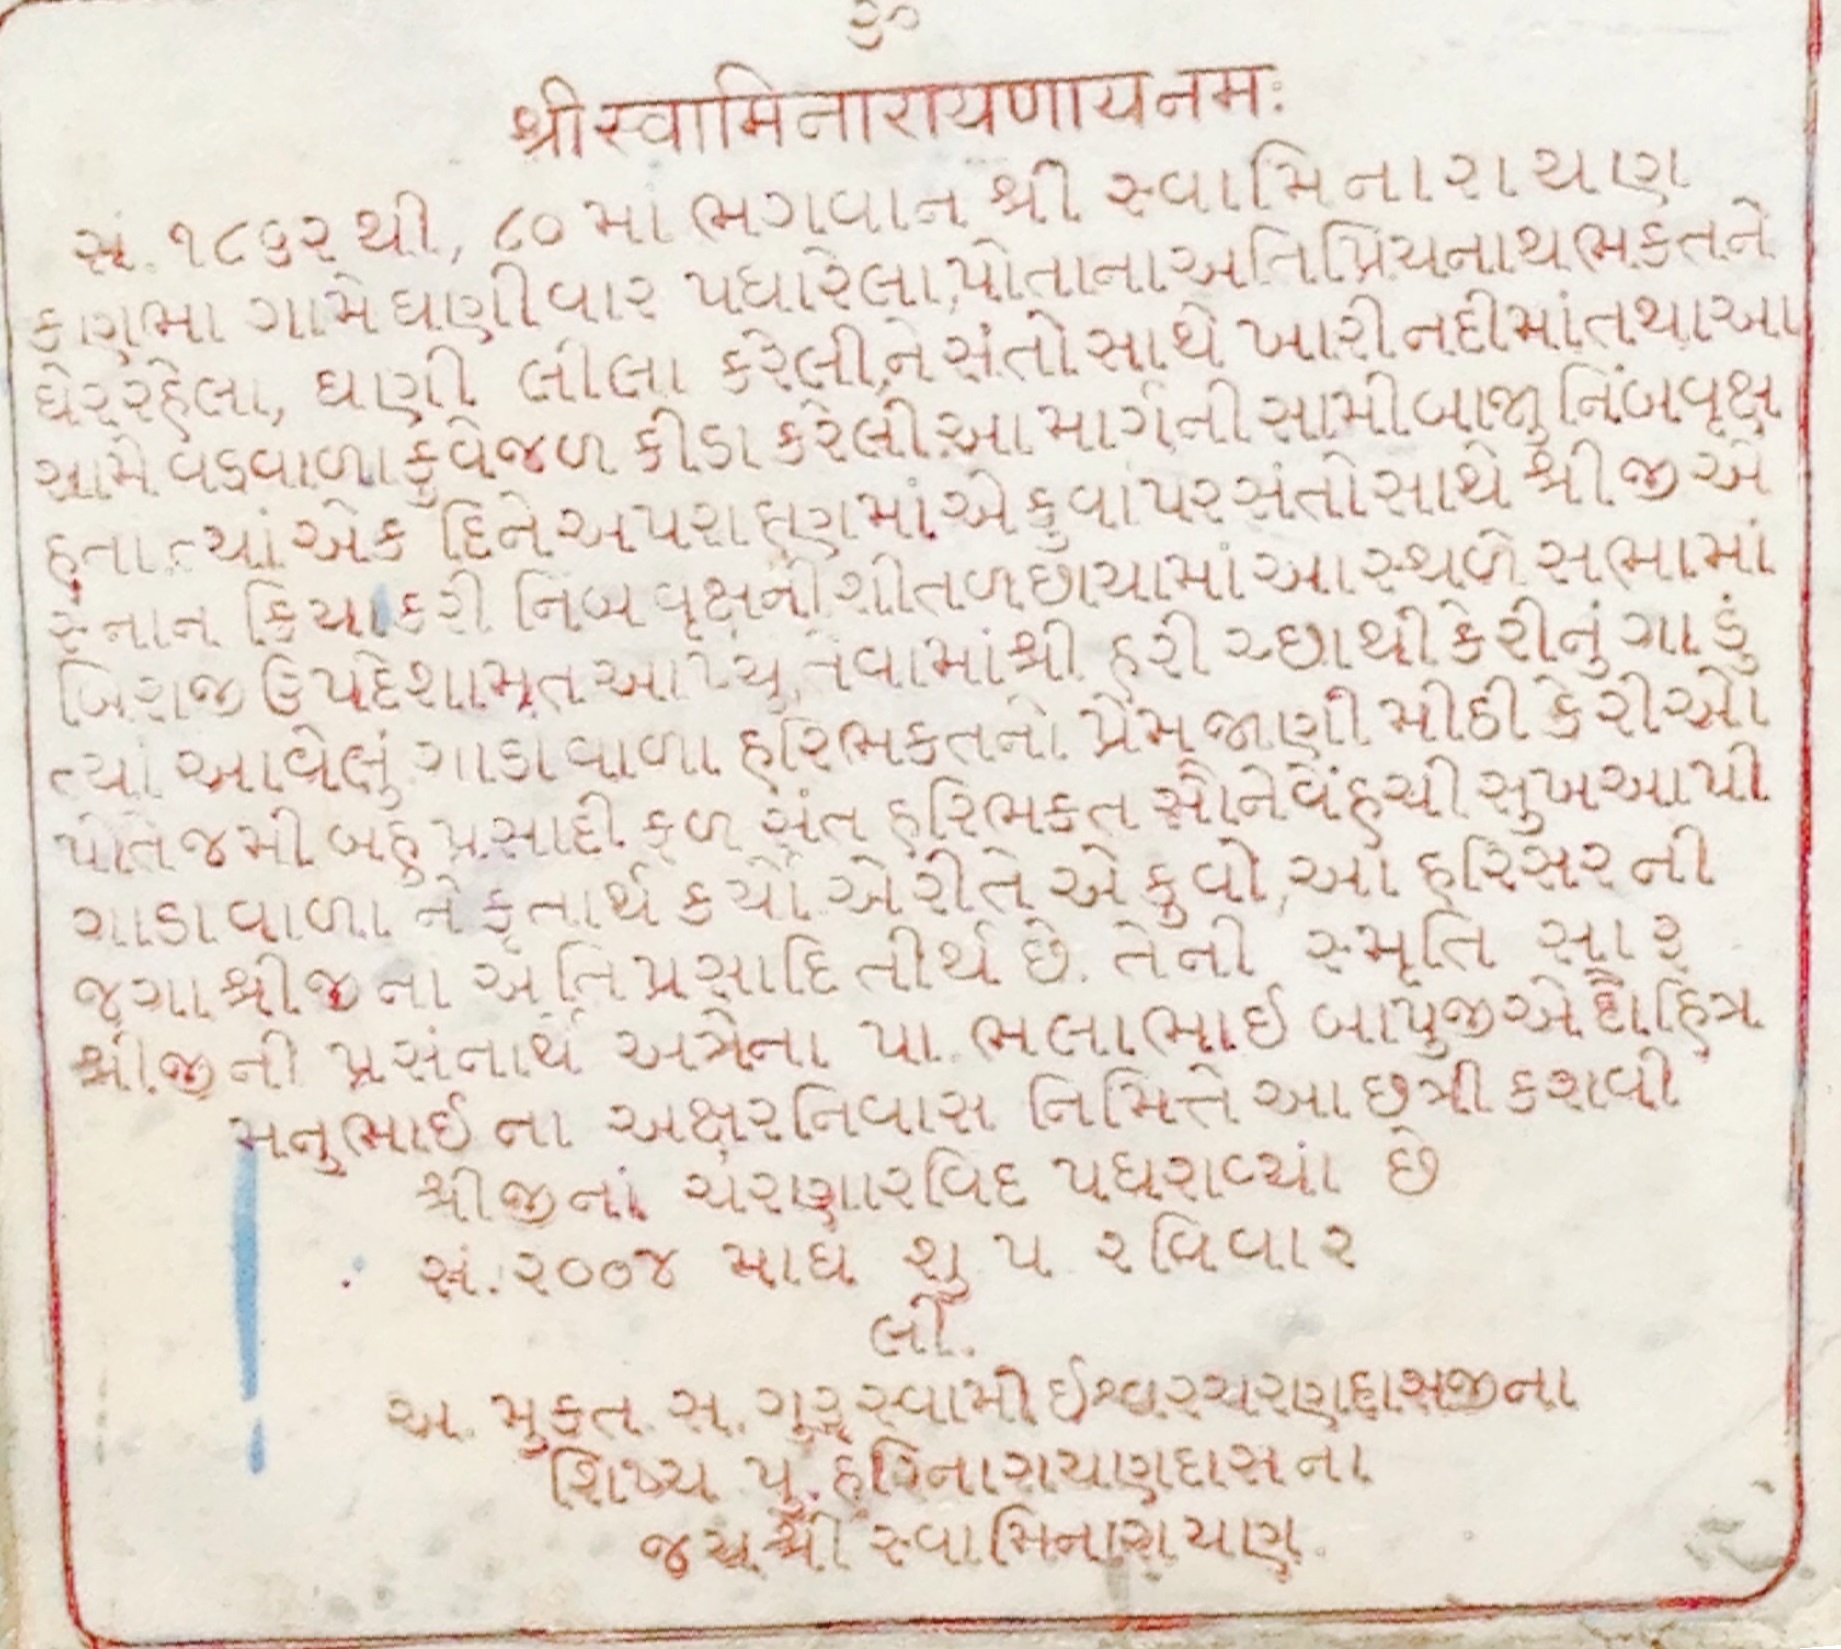 ૐ
श्रीस्वामिनारायणायनमः
સં. ૧૮૬૨ થી, ૮૦ માં ભગવાન શ્રી સ્વામિનારાયણ
કણભા ગામે ઘણીવાર પધારેલા, પોતાના અતિપ્રિય નાથ ભકતને
ઘેર રહેલા, ઘણી લીલા કરેલી, ને સંતો સાથે ખારી નદીમાં તથા આ
સામે વડવાળા કુવે જળ ક્રીડા કરેલી. આ માર્ગની સામી બાજુ નિંબવૃક્ષ
હતા. ત્યાં એક દિને અપરાહ્ણમાં એ કુવા પર સંતો સાથે શ્રીજીએ
સ્નાન ક્રિયા કરી નિંબ વૃક્ષની શીતળ છાયામાં આ સ્થળે સભામાં
બિરાજી ઉપદેશામૃત આપ્યુ, તેવામાં શ્રી હરી ચ્છાથી કેરીનું ગાડું
ત્યાં આવેલું. ગાડાવાળા હરિભકતનો પ્રેમ જાણી મીઠી કેરીઓ
પોતે જમી બહુ પ્રસાદી ફળ સંત હરિભકત સૌને વેંહચી સુખ આપી
ગાડાવાળા ને કૃતાર્થ કર્યો. એ રીતે એ કુવો, આ હરિસર ની
જગા શ્રીજી ના અતિ પ્રસાદિ તીર્થ છે. તેની સ્મૃતિ સારૂ
શ્રીજીની પ્રસંનાર્થે અત્રેના પા. ભલાભાઈ બાપુજીએ દૌહિત્ર
મનુભાઈ ના અક્ષરનિવાસ નિમિત્તે આ છત્રી કરાવી
શ્રીજીનાં ચરણારવિંદ પધરાવ્યાં છે
સં. ૨૦૦૪ માઘ શુ ૫ રવિવાર
લી.
અ. મુકત. સ. ગુરૂ સ્વામી ઈશ્વરચરણદાસજીના
શિષ્ય પુ. હરિનારાયણદાસ ના
જય શ્રી સ્વામિનારાયણ.